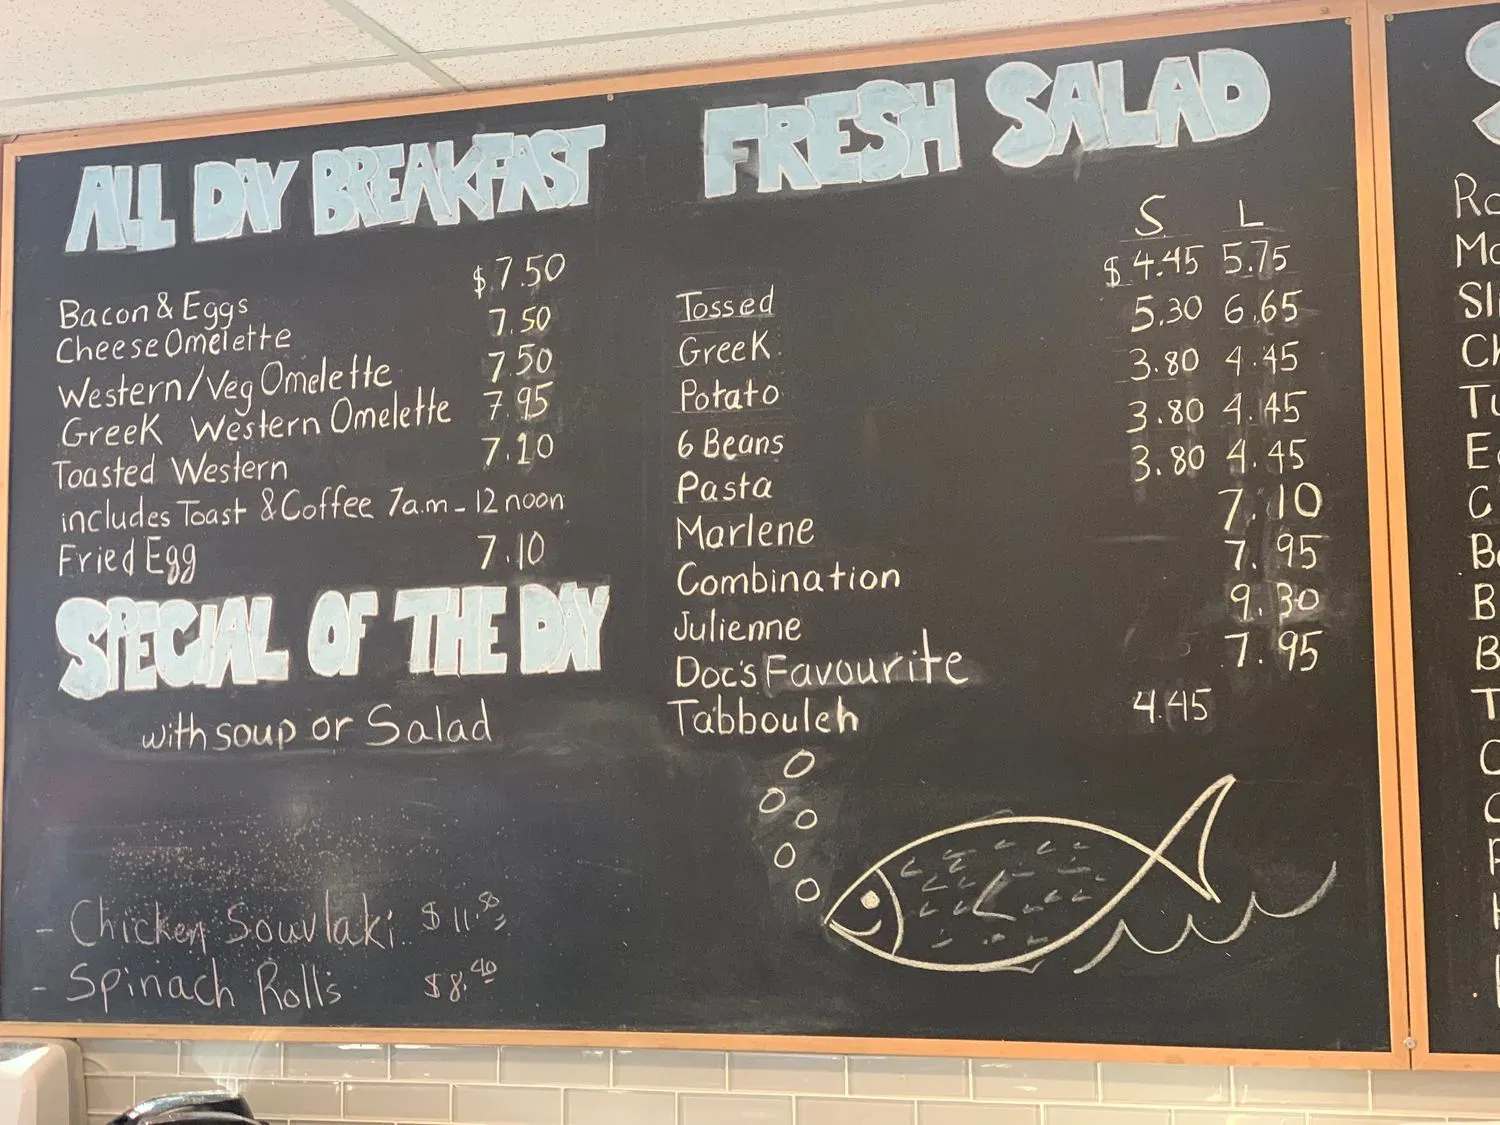 ALL DAY BREAKFAST
Bacon & Eggs $7.50
Cheese Omelette 7.50
Western/Veg Omelette 7.50
Greek Western Omelette 7.95
Toasted Western 7.10
includes Toast & Coffee 7a.m - 12 noon
Fried Egg 7.10
SPECIAL OF THE DAY
with soup or Salad
- Chicken Souvlaki $11.
- Spinach Rolls $8.40
FRESH SALAD
S L
Tossed $4.45 5.75
Greek 5.30 6.65
Potato 3.80 4.45
6 Beans 3.80 4.45
Pasta 3.80 4.45
Marlene 7.10
Combination 7.95
Julienne 9.30
Doc's Favourite 7.95
Tabbouleh 4.45